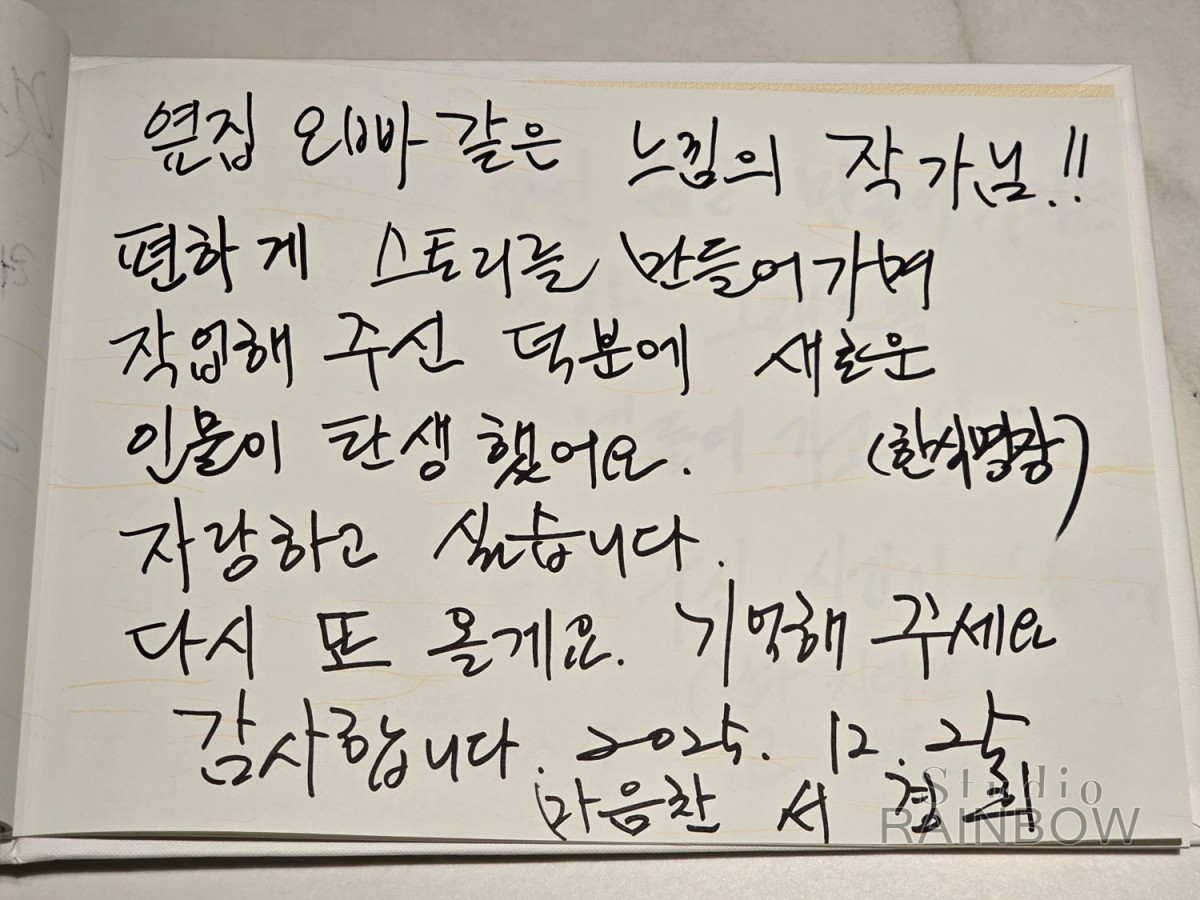 옆집 오빠 같은 느낌의 작가님!!
편하게 스토리를 만들어가며
작업해 주신 덕분에 새로운
인물이 탄생했어요. (한식명장)
자랑하고 싶습니다.
다시 또 올게요. 기억해 주세요
감사합니다. 2025. 12. 25
마음찬 서
Studio
RAINBOW